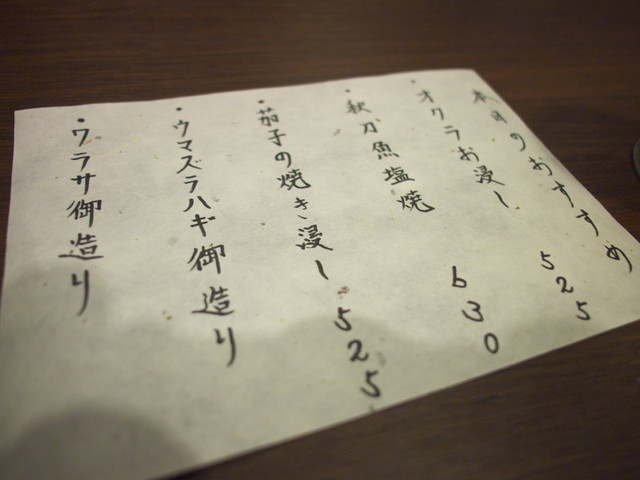 本日のおすすめ
・オクラお浸し 525
・秋刀魚塩焼 630
・茄子の焼き浸し 525
・ウマズラハギ御造り
・ワラサ御造り